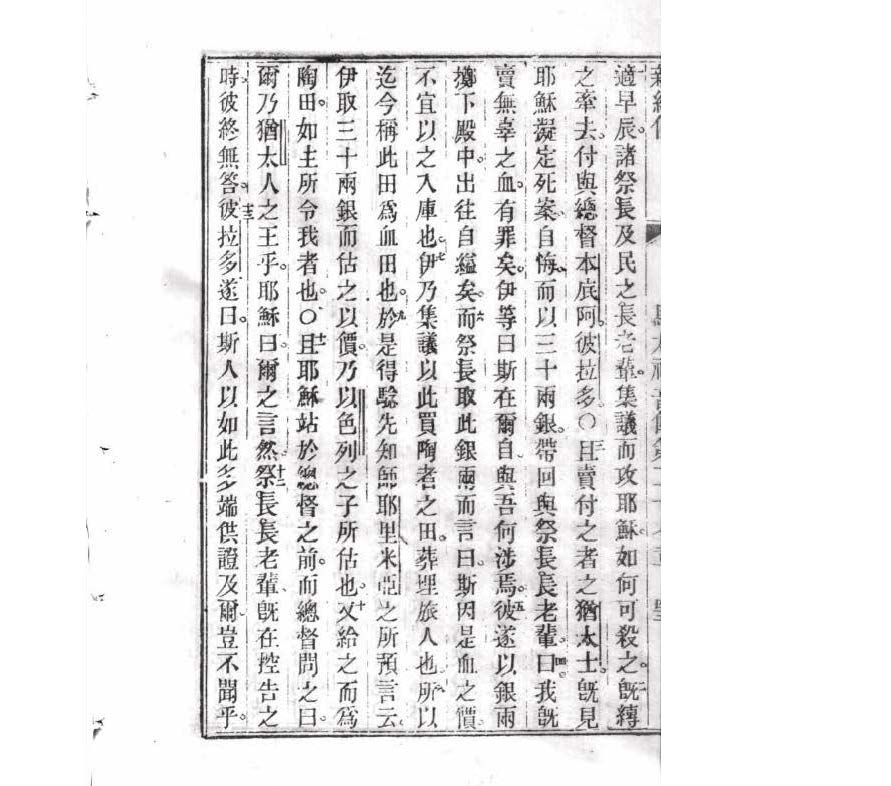 適早辰。諸祭長及民之長老輩集議而攻耶穌。如何可殺之。二既縛
之牽去。付與總督本底阿。彼拉多。○三且賣付之者之猶太士。既見
耶穌擬定死案。自悔。而以三十兩銀。帶回與祭長長老輩。曰。四我既
賣無辜之血。有罪矣。伊等曰斯在爾自。與吾何涉焉。五彼遂以銀兩
擲下殿中。出往自縊矣。六而祭長取此銀兩而言曰。斯因是血之價。
不宜以之入庫也。七伊乃集議以此買陶者之田。葬埋旅人也。八所以
迄今稱此田爲血田也。九於是得騐先知師耶里米亞之所預言云。
伊取三十兩銀而估之以價。乃以色列之子所估也。十又給之而爲
陶田。如主所令我者也。○十一且耶穌站於總督之前。而總督問之曰。
爾乃猶太人之王乎。耶穌曰。爾之言然。十二祭長長老輩、既在控告之
時、彼終無答。十三彼拉多遂曰。斯人以如此多端供證及爾、豈不聞乎。